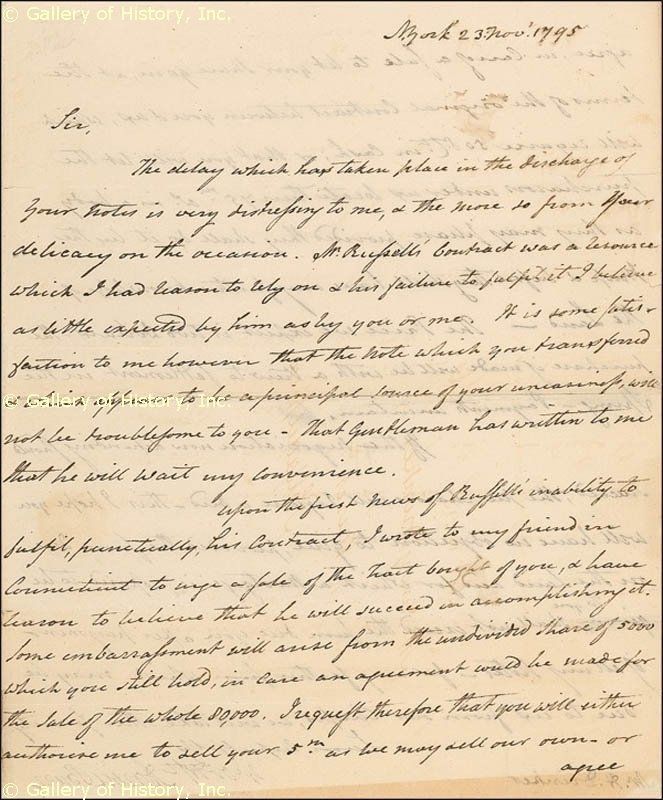 © Gallery of History, Inc.
N.York 23. Nov.r 1795
Sir,
The delay which has taken place in the discharge of
your notes is very distressing to me, & the more so from your
delicacy on the occasion. Mr. Russell's Contract was a resource
which I had reason to rely on & his failure to fulfil it I believe
as little expected by him as by you or me. It is some satis-
faction to me however that the note which you transferred
& which appears to be a principal source of your uneasiness, will
not be troublesome to you - that Gentleman has written to me
that he will wait my convenience.
© Gallery of History, Inc.
upon the first news of Russell's inability to
fulfil, punctually, his Contract, I wrote to my friend in
Connecticut to urge a sale of the tract bought of you, & have
reason to believe that he will succeed in accomplishing it.
Some embarrassment will arise from the undivided share of 5000
which you still hold, in case an agreement would be made for
the sale of the whole 80,000. I request therefore that you will either
authorise me to sell your 5.m as we may sell our own - or
agree
© Gallery of History, Inc.